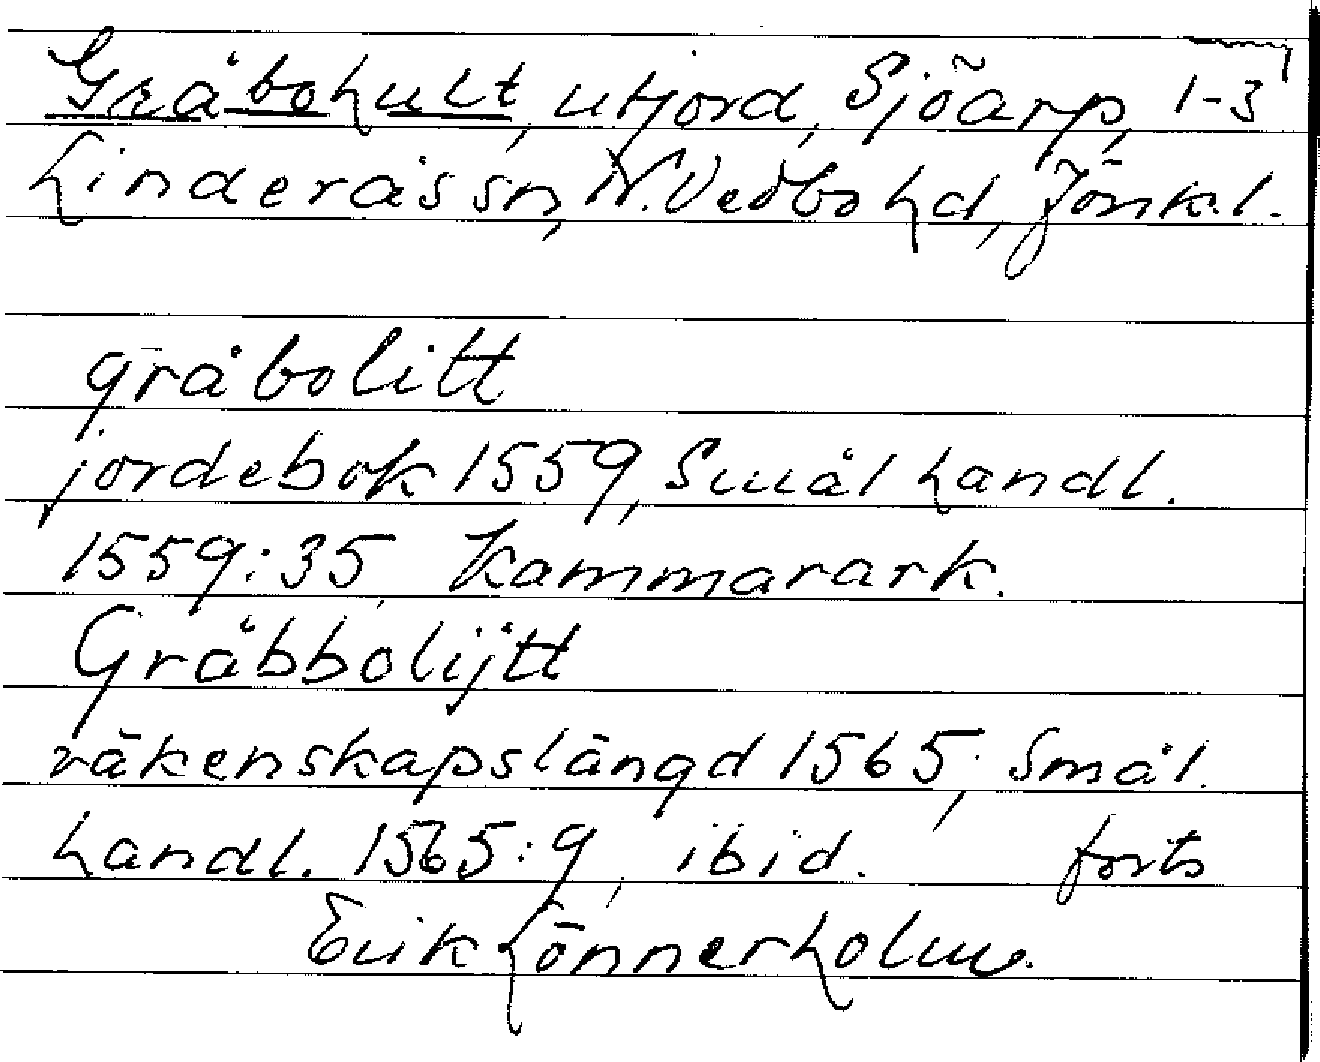 Gråbohult, utjord, Sjöarp, 1-3
Linderås sn, N. Vedbo hd, Jönk. l.
gråbolitt
jordebok 1559, Smål handl.
1559:35, Kammarark.
Gråbbolijtt
räkenskapslängd 1565, Smål.
handl. 1565:9, ibid. forts
Erik Lönnerholm.